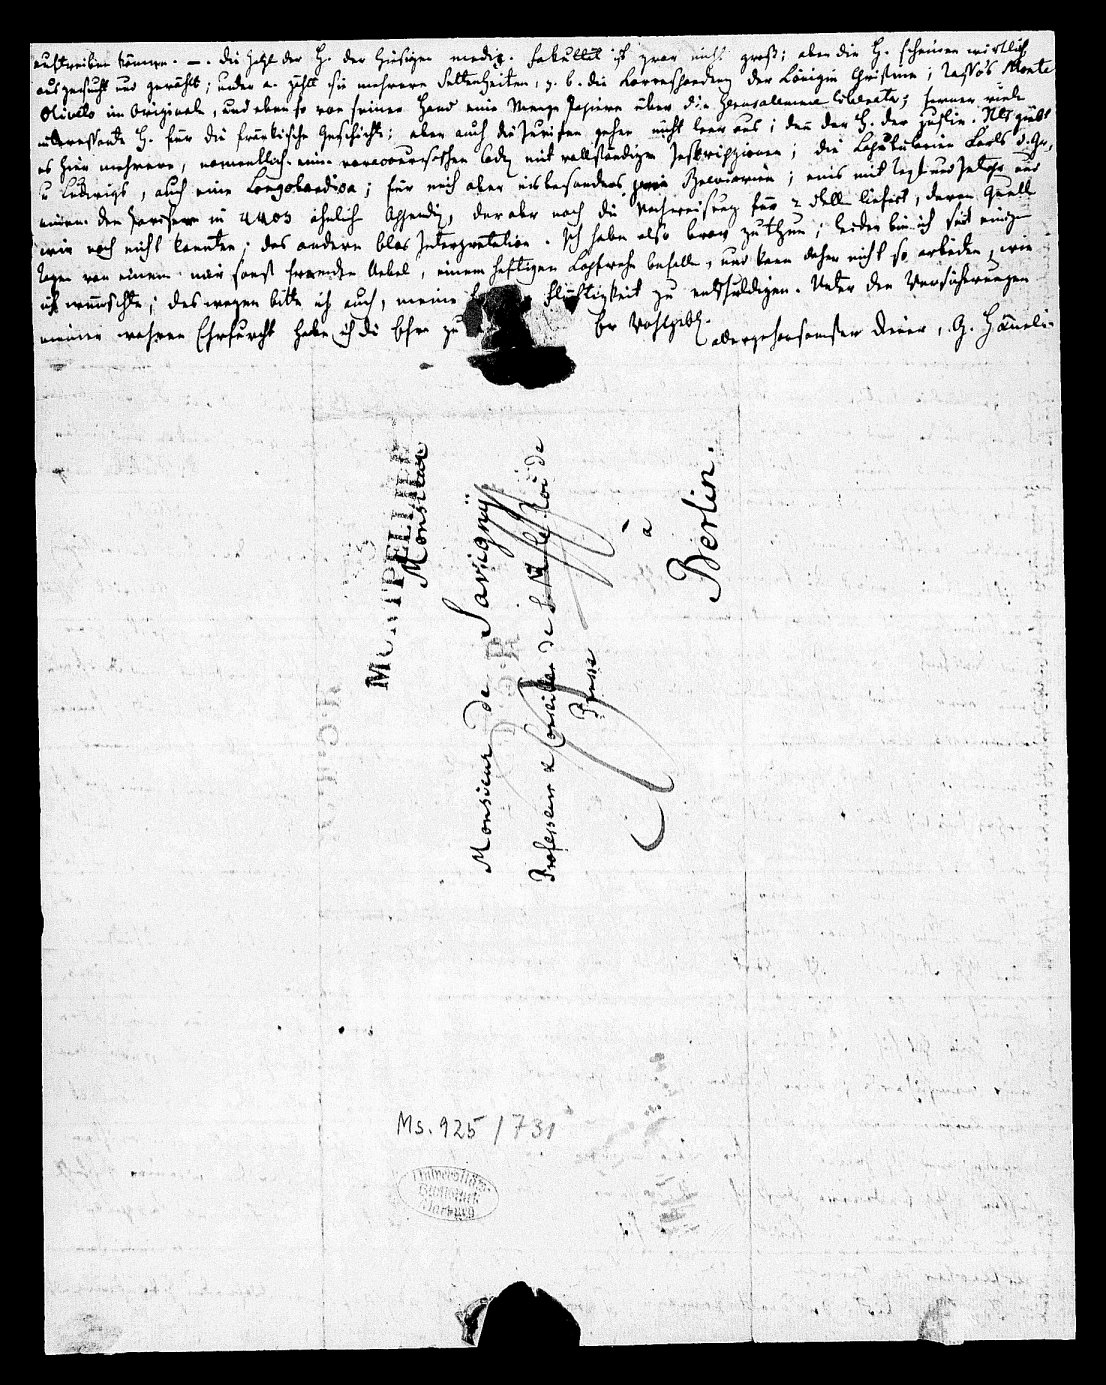 auftreiben können. —. die Zahl der H. der hiesigen mediz. Fakultät ist zwar nicht groß; aber die H. scheinen wirklich
ausgesucht und gewählt; under a. zählt sie mehrere Seltenheiten, z. b. die Korrespondenz der Königin Christine; Tasso's Monte
Oliveto im Original, und eben so von seiner Hand eine Menge Papiere über die Gerusalemme liberata; ferner viele
interessante H. für die fränkische Geschichte; aber auch die Juristen gehen nicht leer aus; denn der H. der Justin.
es hier mehrere, namentlich einen Codex mit vollständigen Inskripzionen; die Kapitularien Karls d. Gr.,
u Ludwigs, auch eine Longobardica; für mich aber insbesondere zwei Breviarien; eins mit Text und Interpr. und
einem den Parisern in 4403 ähnlichen Appendix, der aber noch die Nachweisung für 2 Stellen liefert, deren Quelle
wir noch nicht kannten; das andere blos Interpretation. Ich habe also brav zu thun; leider bin ich seit einigen
Tagen von einem mir sonst fremden Uebel, einem heftigen Kopfwehe befallen, und kann daher nicht so arbeiten, wie
ich wünschte; deswegen bitte ich auch, meine Flüchtigkeit zu entschuldigen. Unter den Versicherungen
meiner wahren Ehrfurcht habe ich die Ehre zu Er Wohlgeb. allergehorsamster Diener, G. Hänel.
MONTPELLIER
Monsieur
Monsieur de Savigny
Professeur & Conseiller de S. M. le Roi de
Prusse
à
Berlin.
Ms. 925/731
Universitäts-
Bibliothek
Marburg